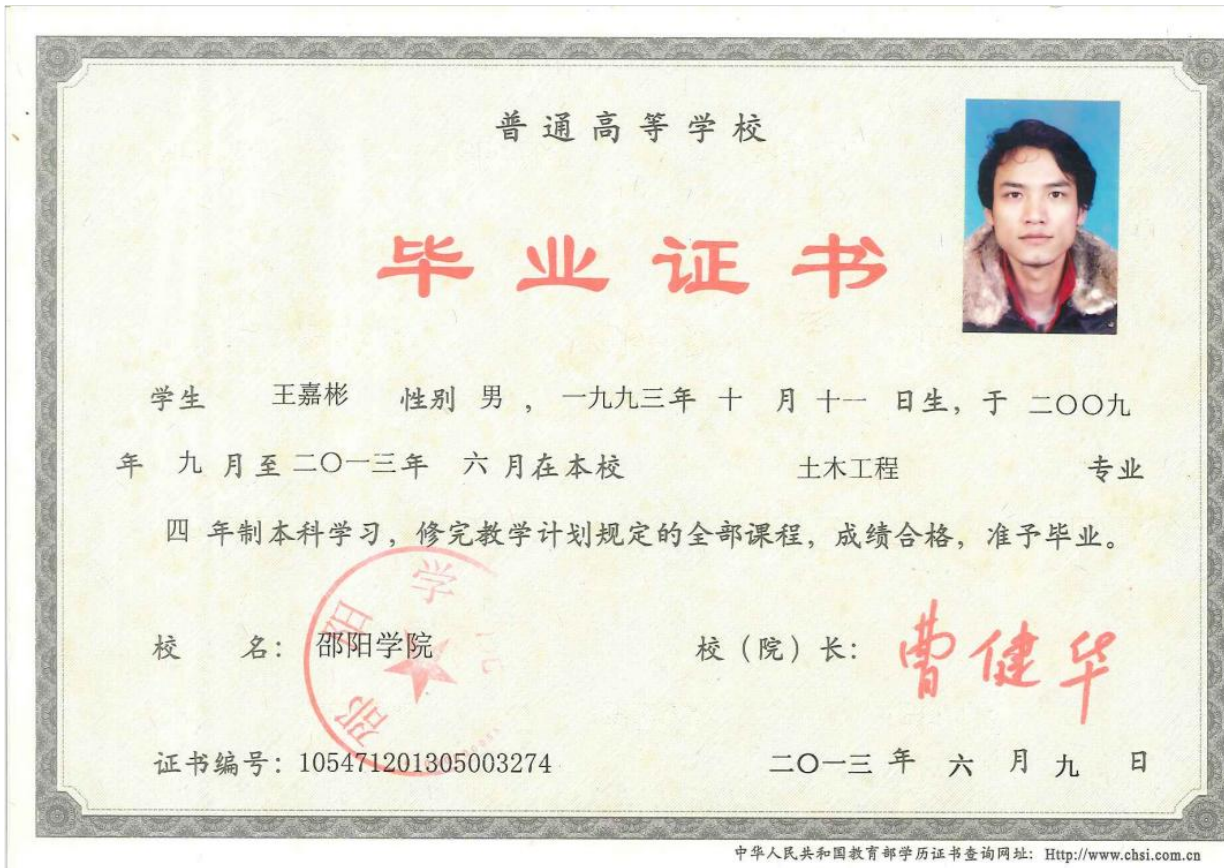 普通高等学校
毕业证书
学生 王嘉彬 性别 男 ，一九九三年 十 月 十一 日生，于 二〇〇九
年 九 月至二〇一三年 六 月在本校 土木工程 专业
四 年制本科学习，修完教学计划规定的全部课程，成绩合格，准予毕业。
校 名：邵阳学院 校（院）长：曹健华
邵阳学院
证书编号：105471201305003274 二〇一三 年 六 月 九 日
中华人民共和国教育部学历证书查询网址：Http://www.chsi.com.cn